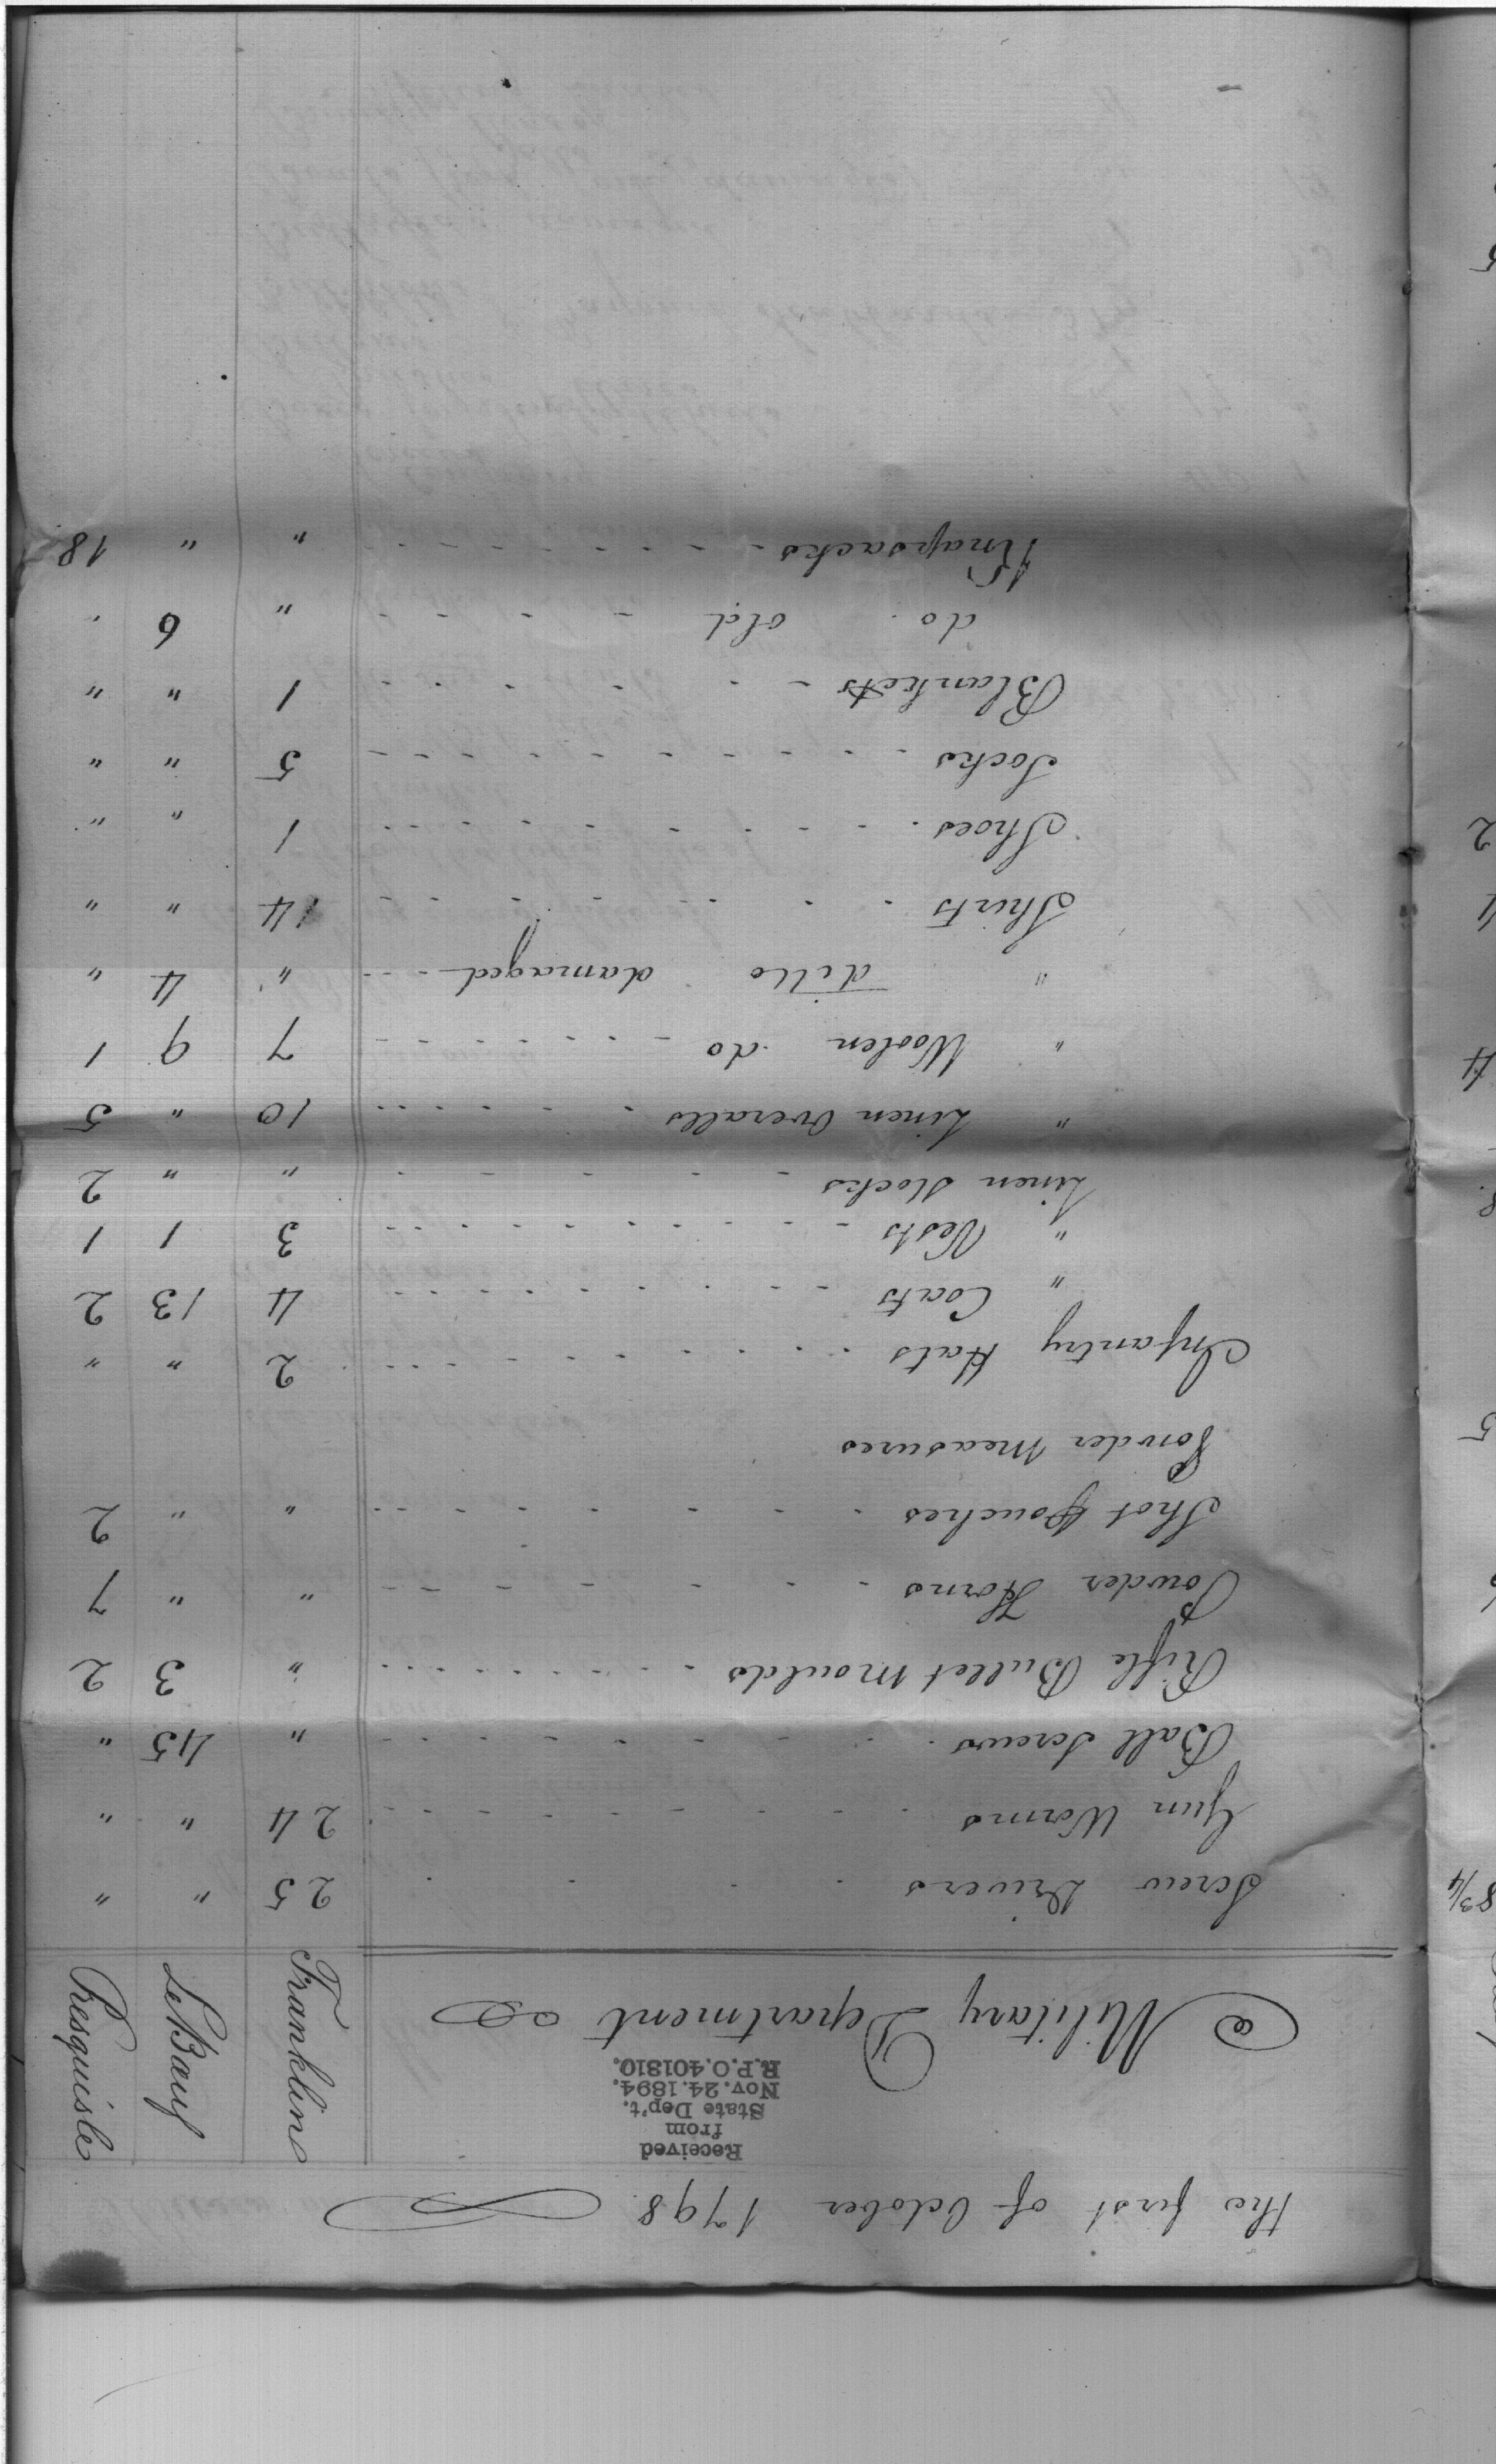 the first of October 1798.
Received
from
State Dep't.
Nov. 24. 1894.
R.P.O. 401810.
Military Department
Franklin
LeBœuf
Presquisle
Screw Drivers 25 " "
Gun Worms 24 " "
Ball Screws " 45 "
Rifle Bullet Moulds " 3 2
Powder Horns " " 7
Shot Pouches " " 2
Powder Measures
Infantry Hats 2 " "
" Coats 4 13 2
" Vests 3 1 1
Linen Stocks " " 2
" Linen Overalls 10 " 5
" Woolen do 7 9 1
" ditto damaged " 4 "
Shirts 14 " "
Shoes 1 " "
Socks 5 " "
Blankets 1 " "
do. old " 6 "
Knapsacks " " 18